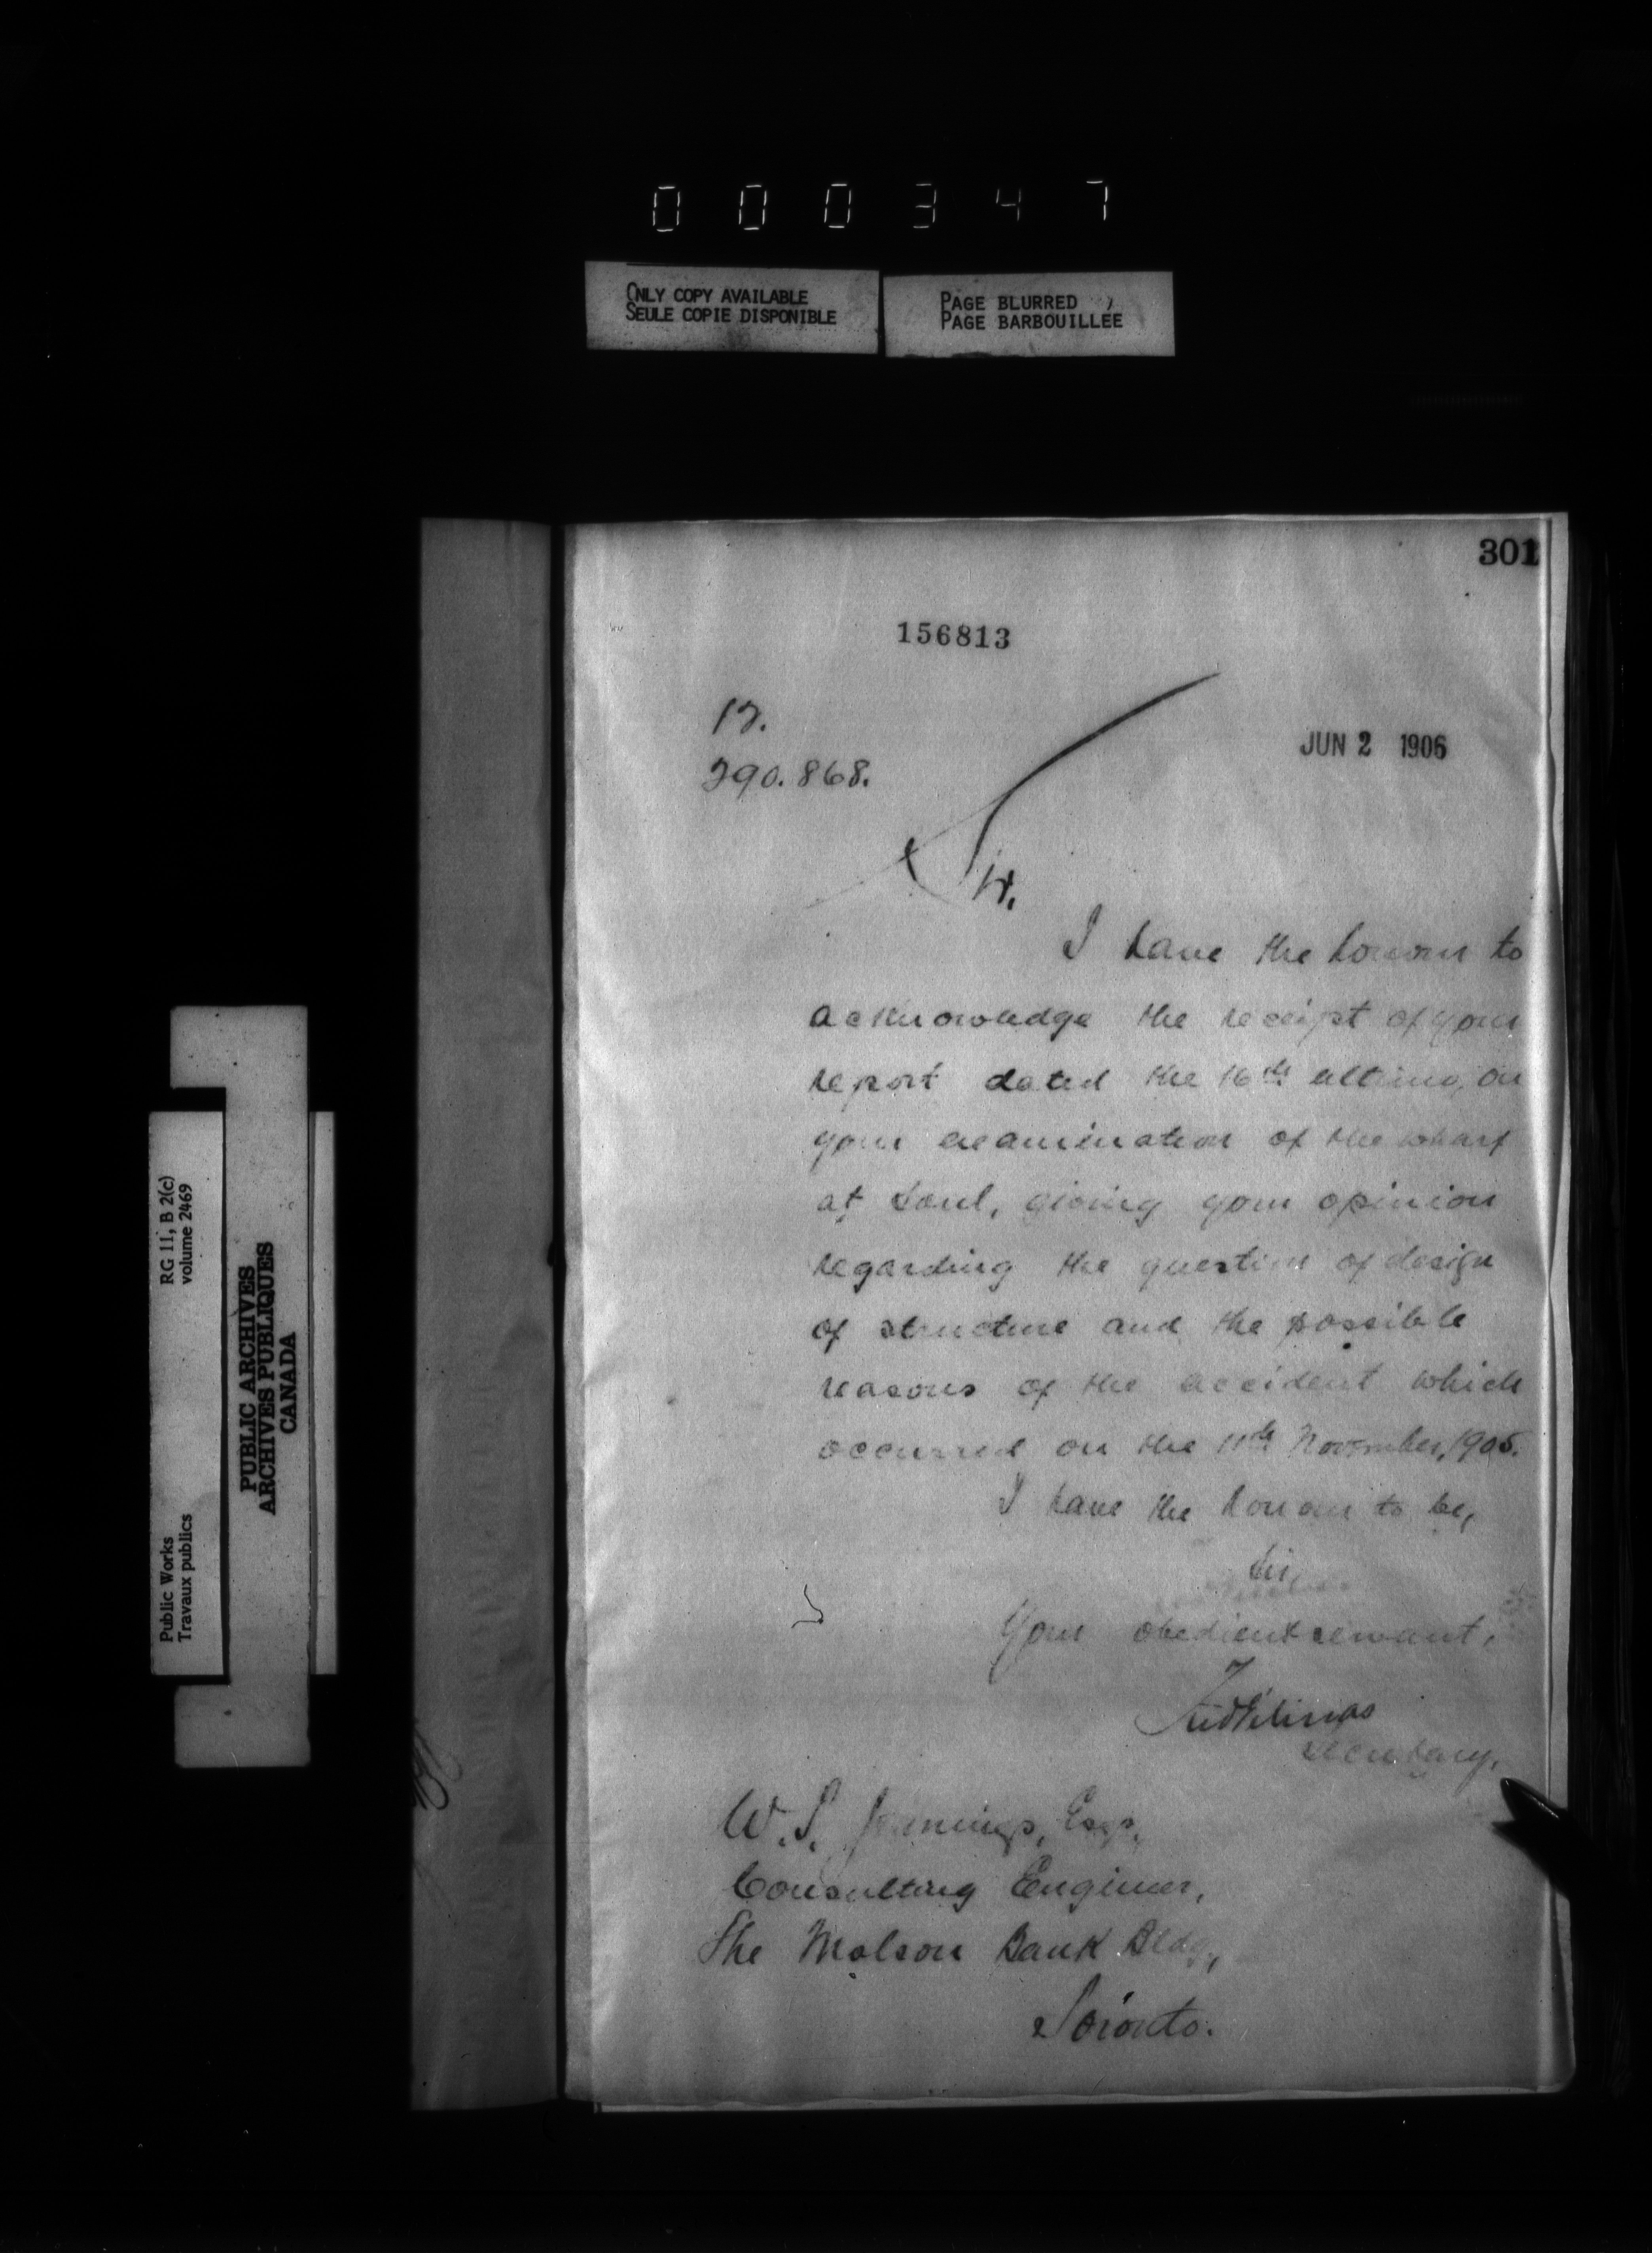 000347
ONLY COPY AVAILABLE
SEULE COPIE DISPONIBLE
PAGE BLURRED
PAGE BARBOUILLEE
301
156813
JUN 2 1906
290.868.
I have the honour to
acknowledge the receipt of your
report dated the 16th ultimo, on
your examination of the wharf
at Sorel, giving your opinion
regarding the question of design
of structure and the possible
reasons of the accident which
occurred on the 11th November, 1905.
I have the honour to be,
Sir,
Your obedient servant,
Fred Gélinas
Secretary.
W. S. Jennings, Esq.,
Consulting Engineer,
The Molson Bank Bldg,
Toronto.
RG 11, B 2(c)
volume 2469
PUBLIC ARCHIVES
ARCHIVES PUBLIQUES
CANADA
Public Works
Travaux publics